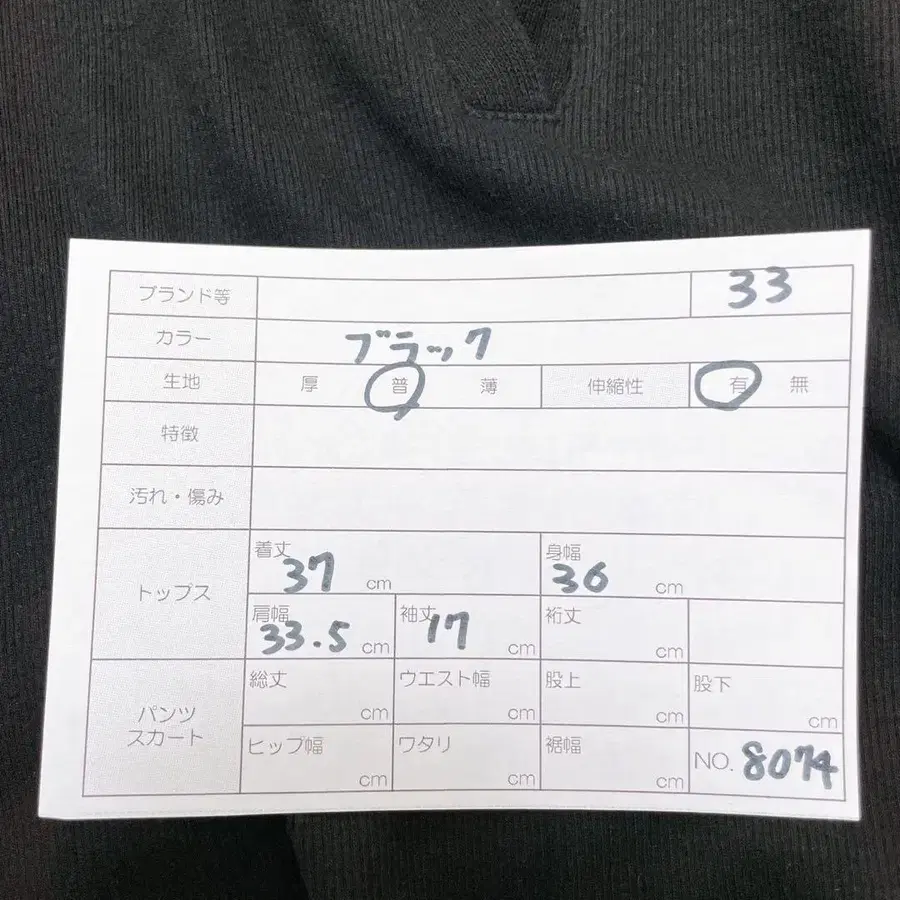 ブランド等 33
カラー ブラック
生地 厚 普 薄 伸縮性 有 無
特徴
汚れ・傷み
トップス
着丈 37 cm 身幅 36 cm
肩幅 33.5 cm 袖丈 17 cm 裄丈 cm
パンツ
スカート
総丈 cm ウエスト幅 cm 股上 cm 股下 cm
ヒップ幅 cm ワタリ cm 裾幅 cm NO. 8074